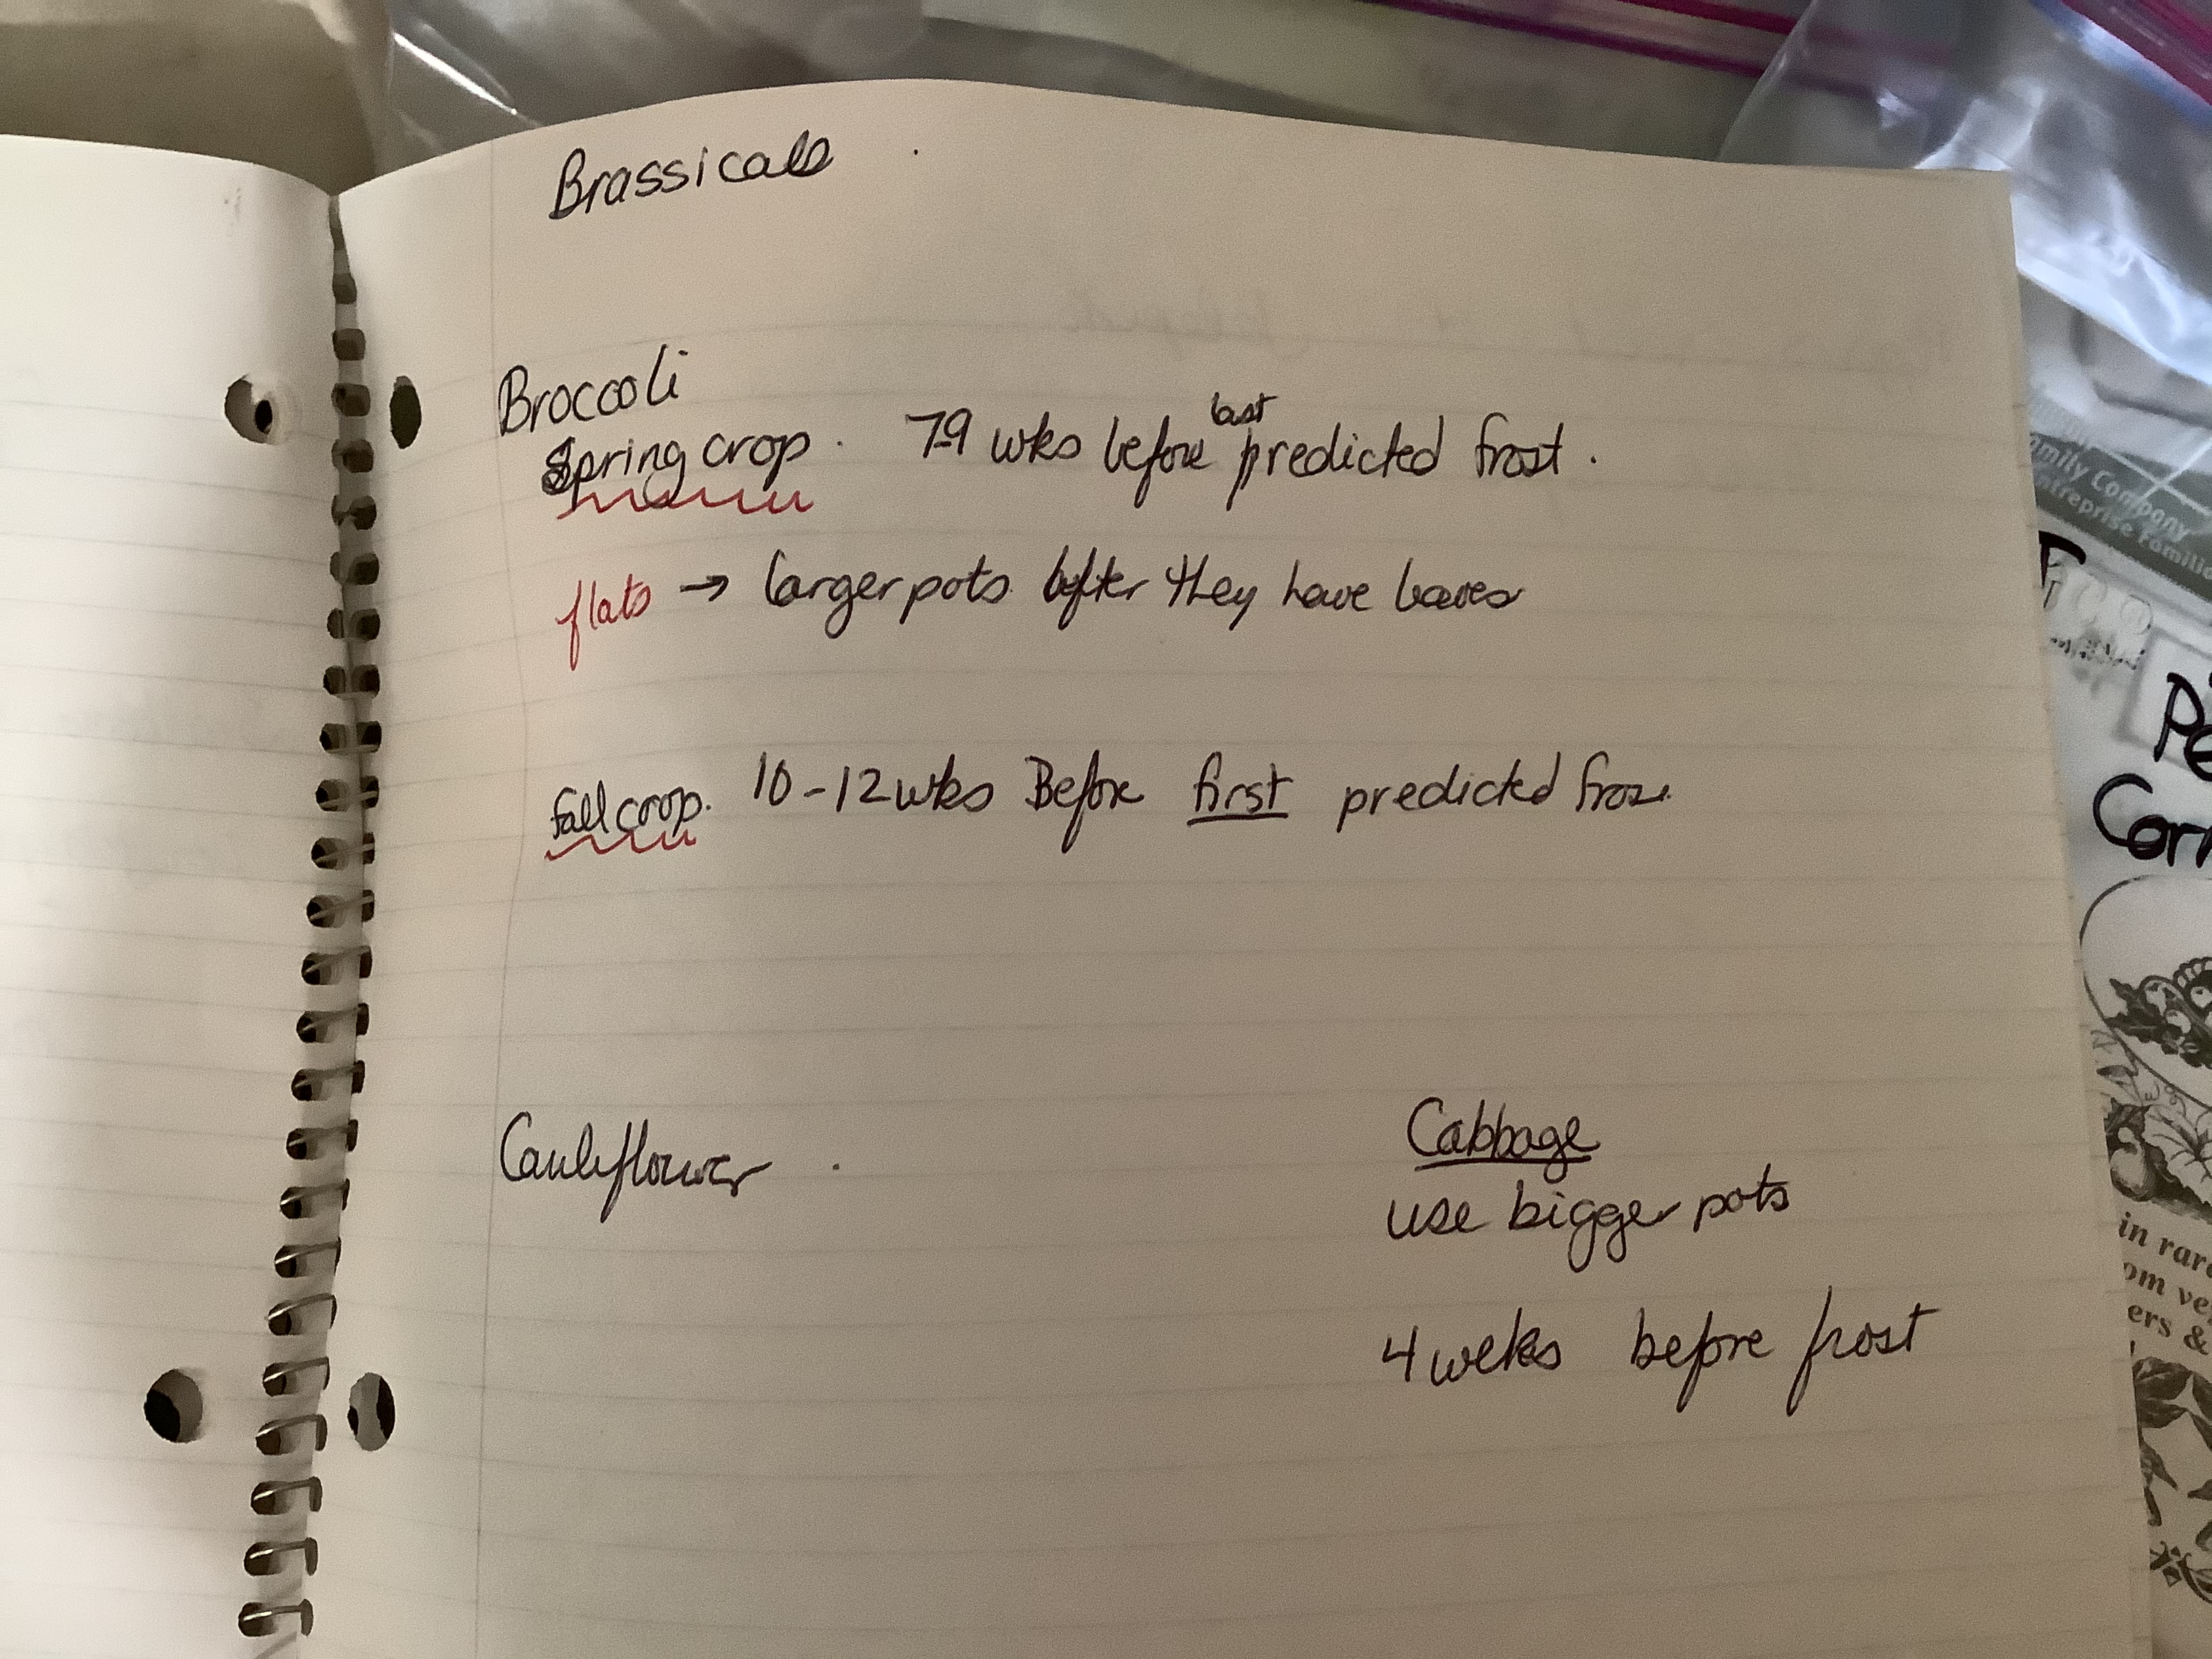 Brassicas
Broccoli
Spring crop. 7-9 wks before last predicted frost.
flats → larger pots after they have leaves
fall crop. 10-12 wks Before first predicted
Cauliflower
Cabbage
use bigger pots
4 weeks before frost
Family Company
Entreprise Familia
Pe
Corn
in rare
om ve
ers &